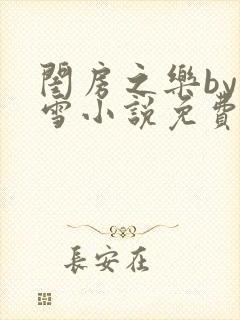 閨房之樂by
雪小說免費
長安在